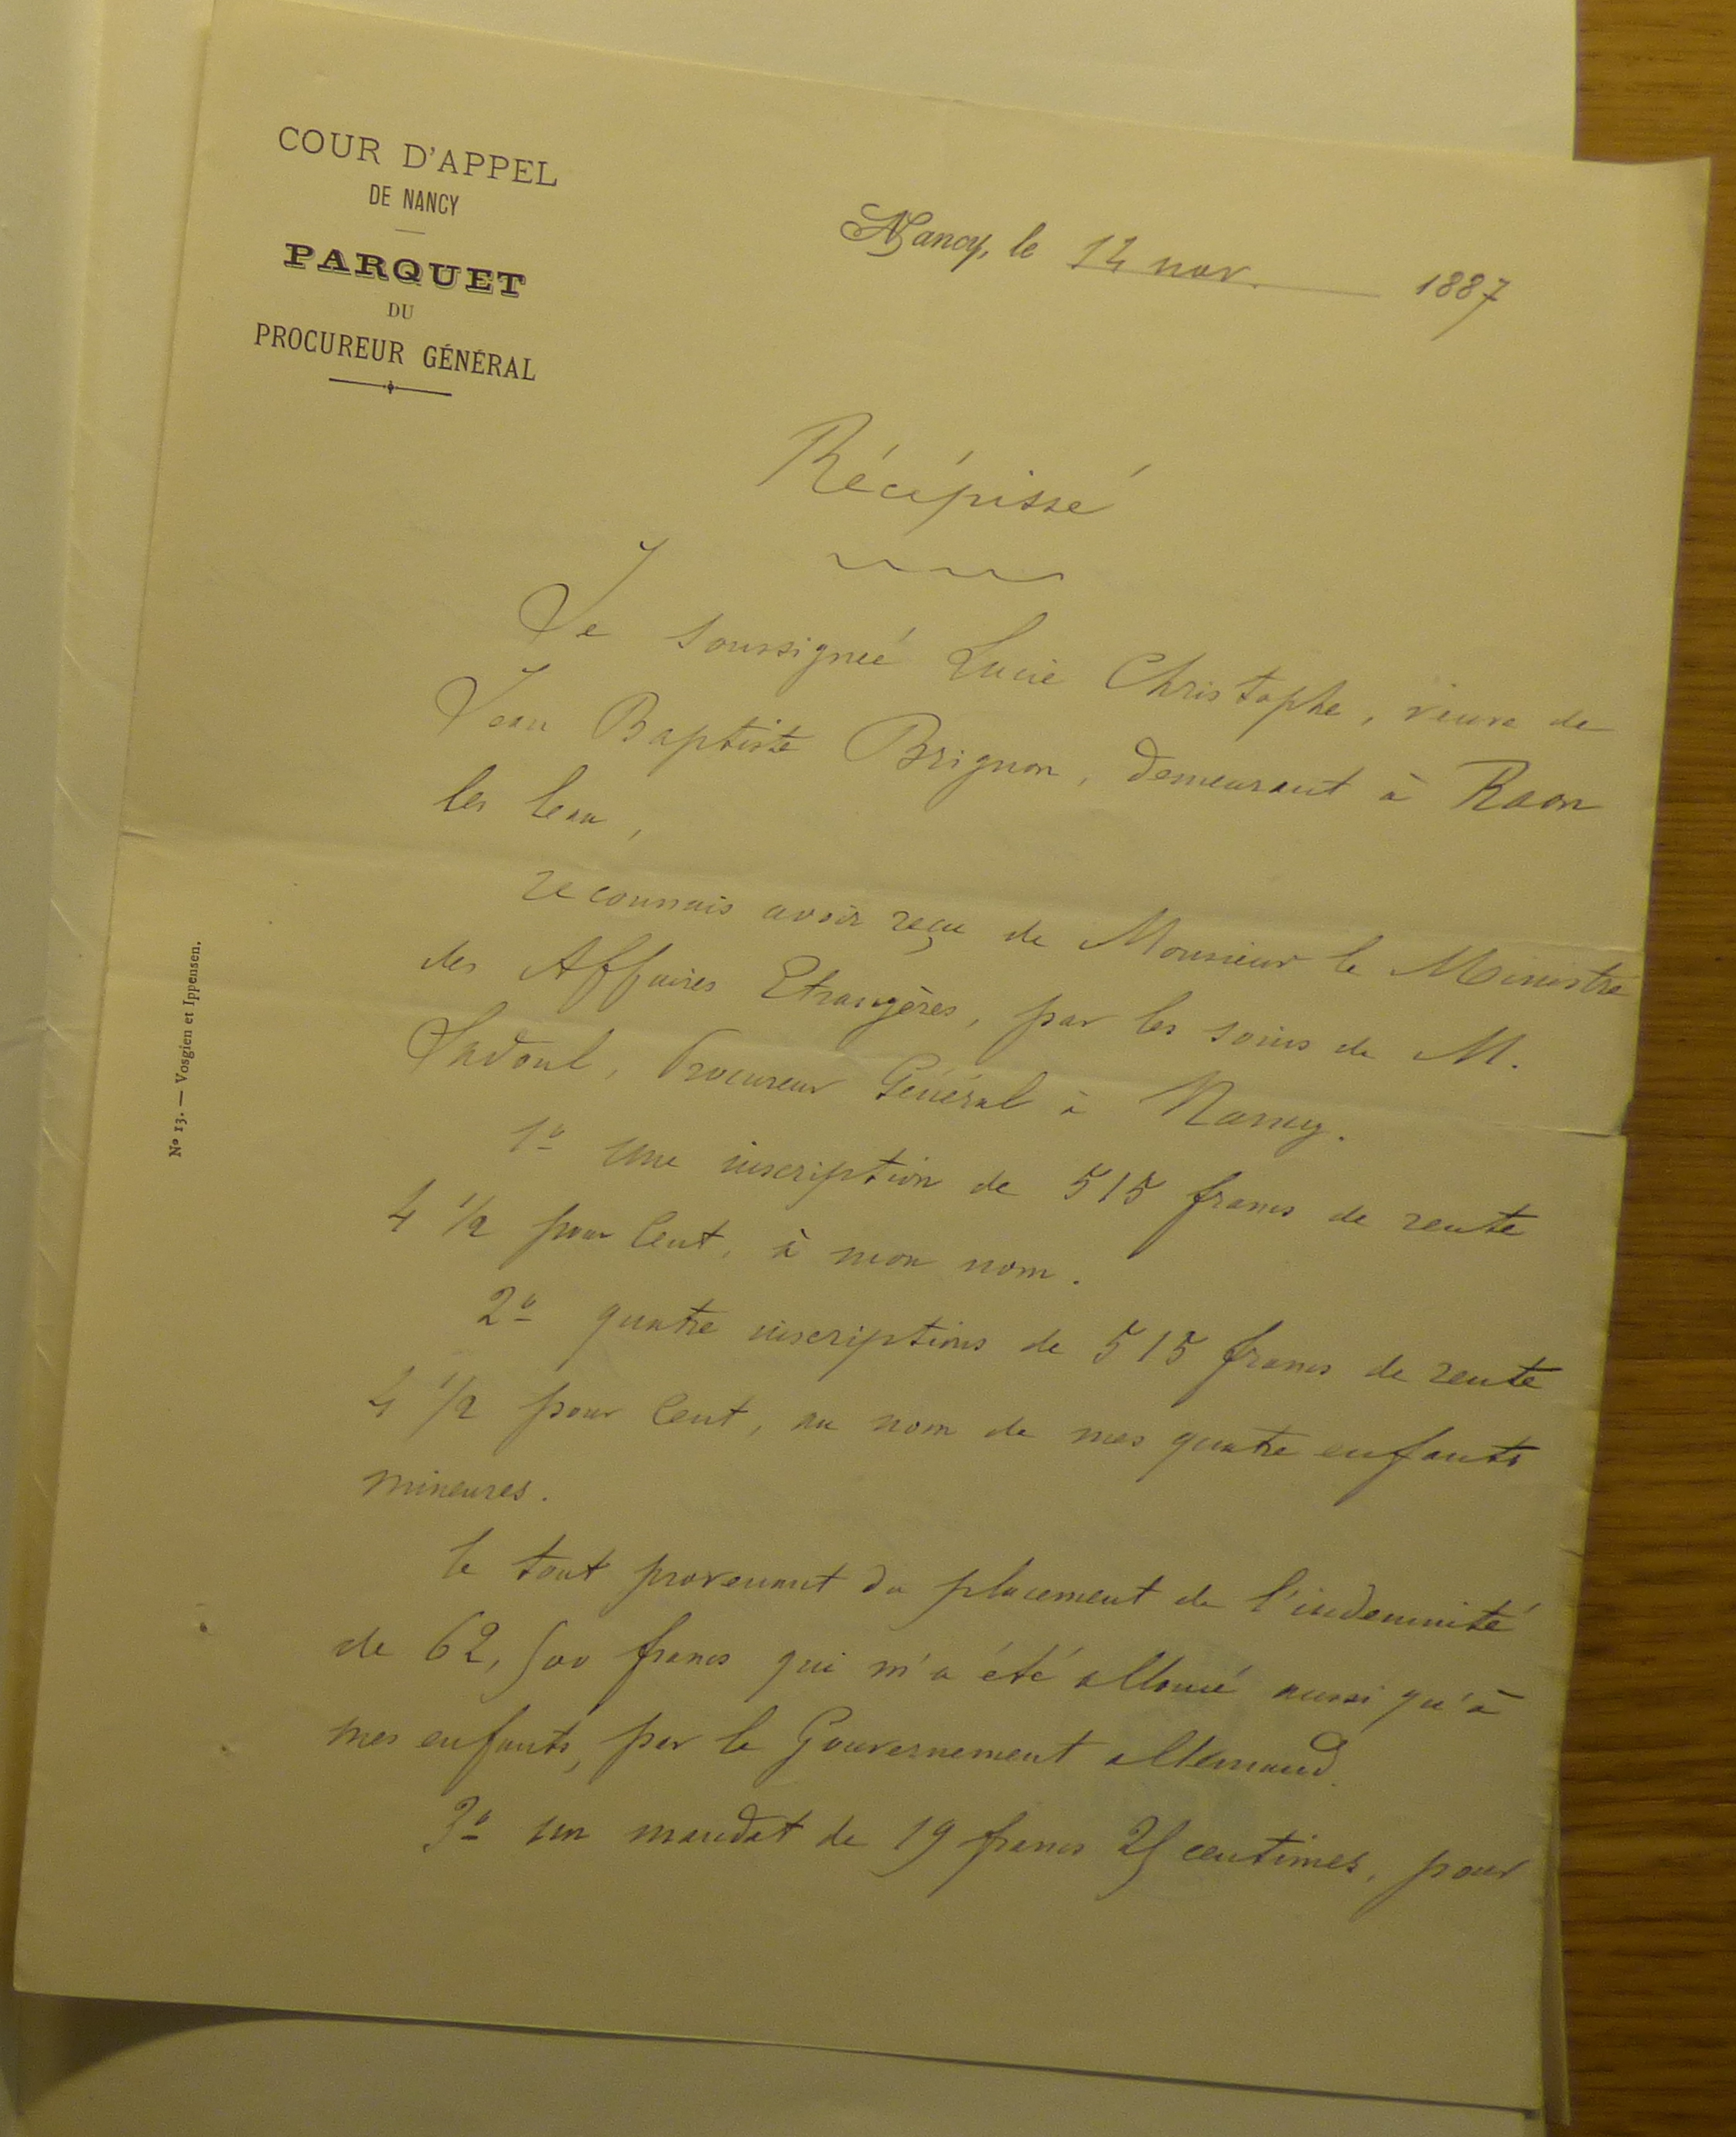 COUR D'APPEL
DE NANCY
PARQUET
DU
PROCUREUR GÉNÉRAL
Nancy, le 14 nov. 1887
Récépissé
Je soussigneé Lucie Christophe, veuve de
Jean Baptiste Brignon, demeurant à Raon
les leau,
reconnais avoir reçu de Monsieur le Ministre
des Affaires Etrangères, par les soins de M.
Sadoul, Procureur Général à Nancy.
1º une inscription de 515 francs de rente
4 1/2 pour Cent, à mon nom.
2º quatre inscriptions de 515 francs de rente
4 1/2 pour Cent, au nom de mes quatre enfants
mineures.
le tout provenant du placement de l'indemnité
de 62,500 francs qui m'a été alloué aussi qu'à
mes enfants, par le Gouvernement allemand.
3º un mandat de 19 francs 25 centimes, pour
Nº 13. — Vosgien et Ippensen.